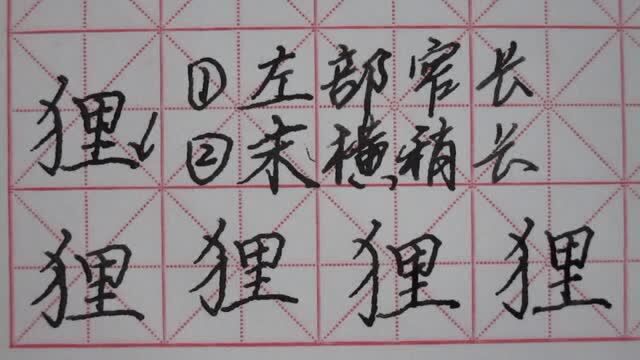 狸 ①左部窄长
②末横稍长
狸 狸 狸 狸